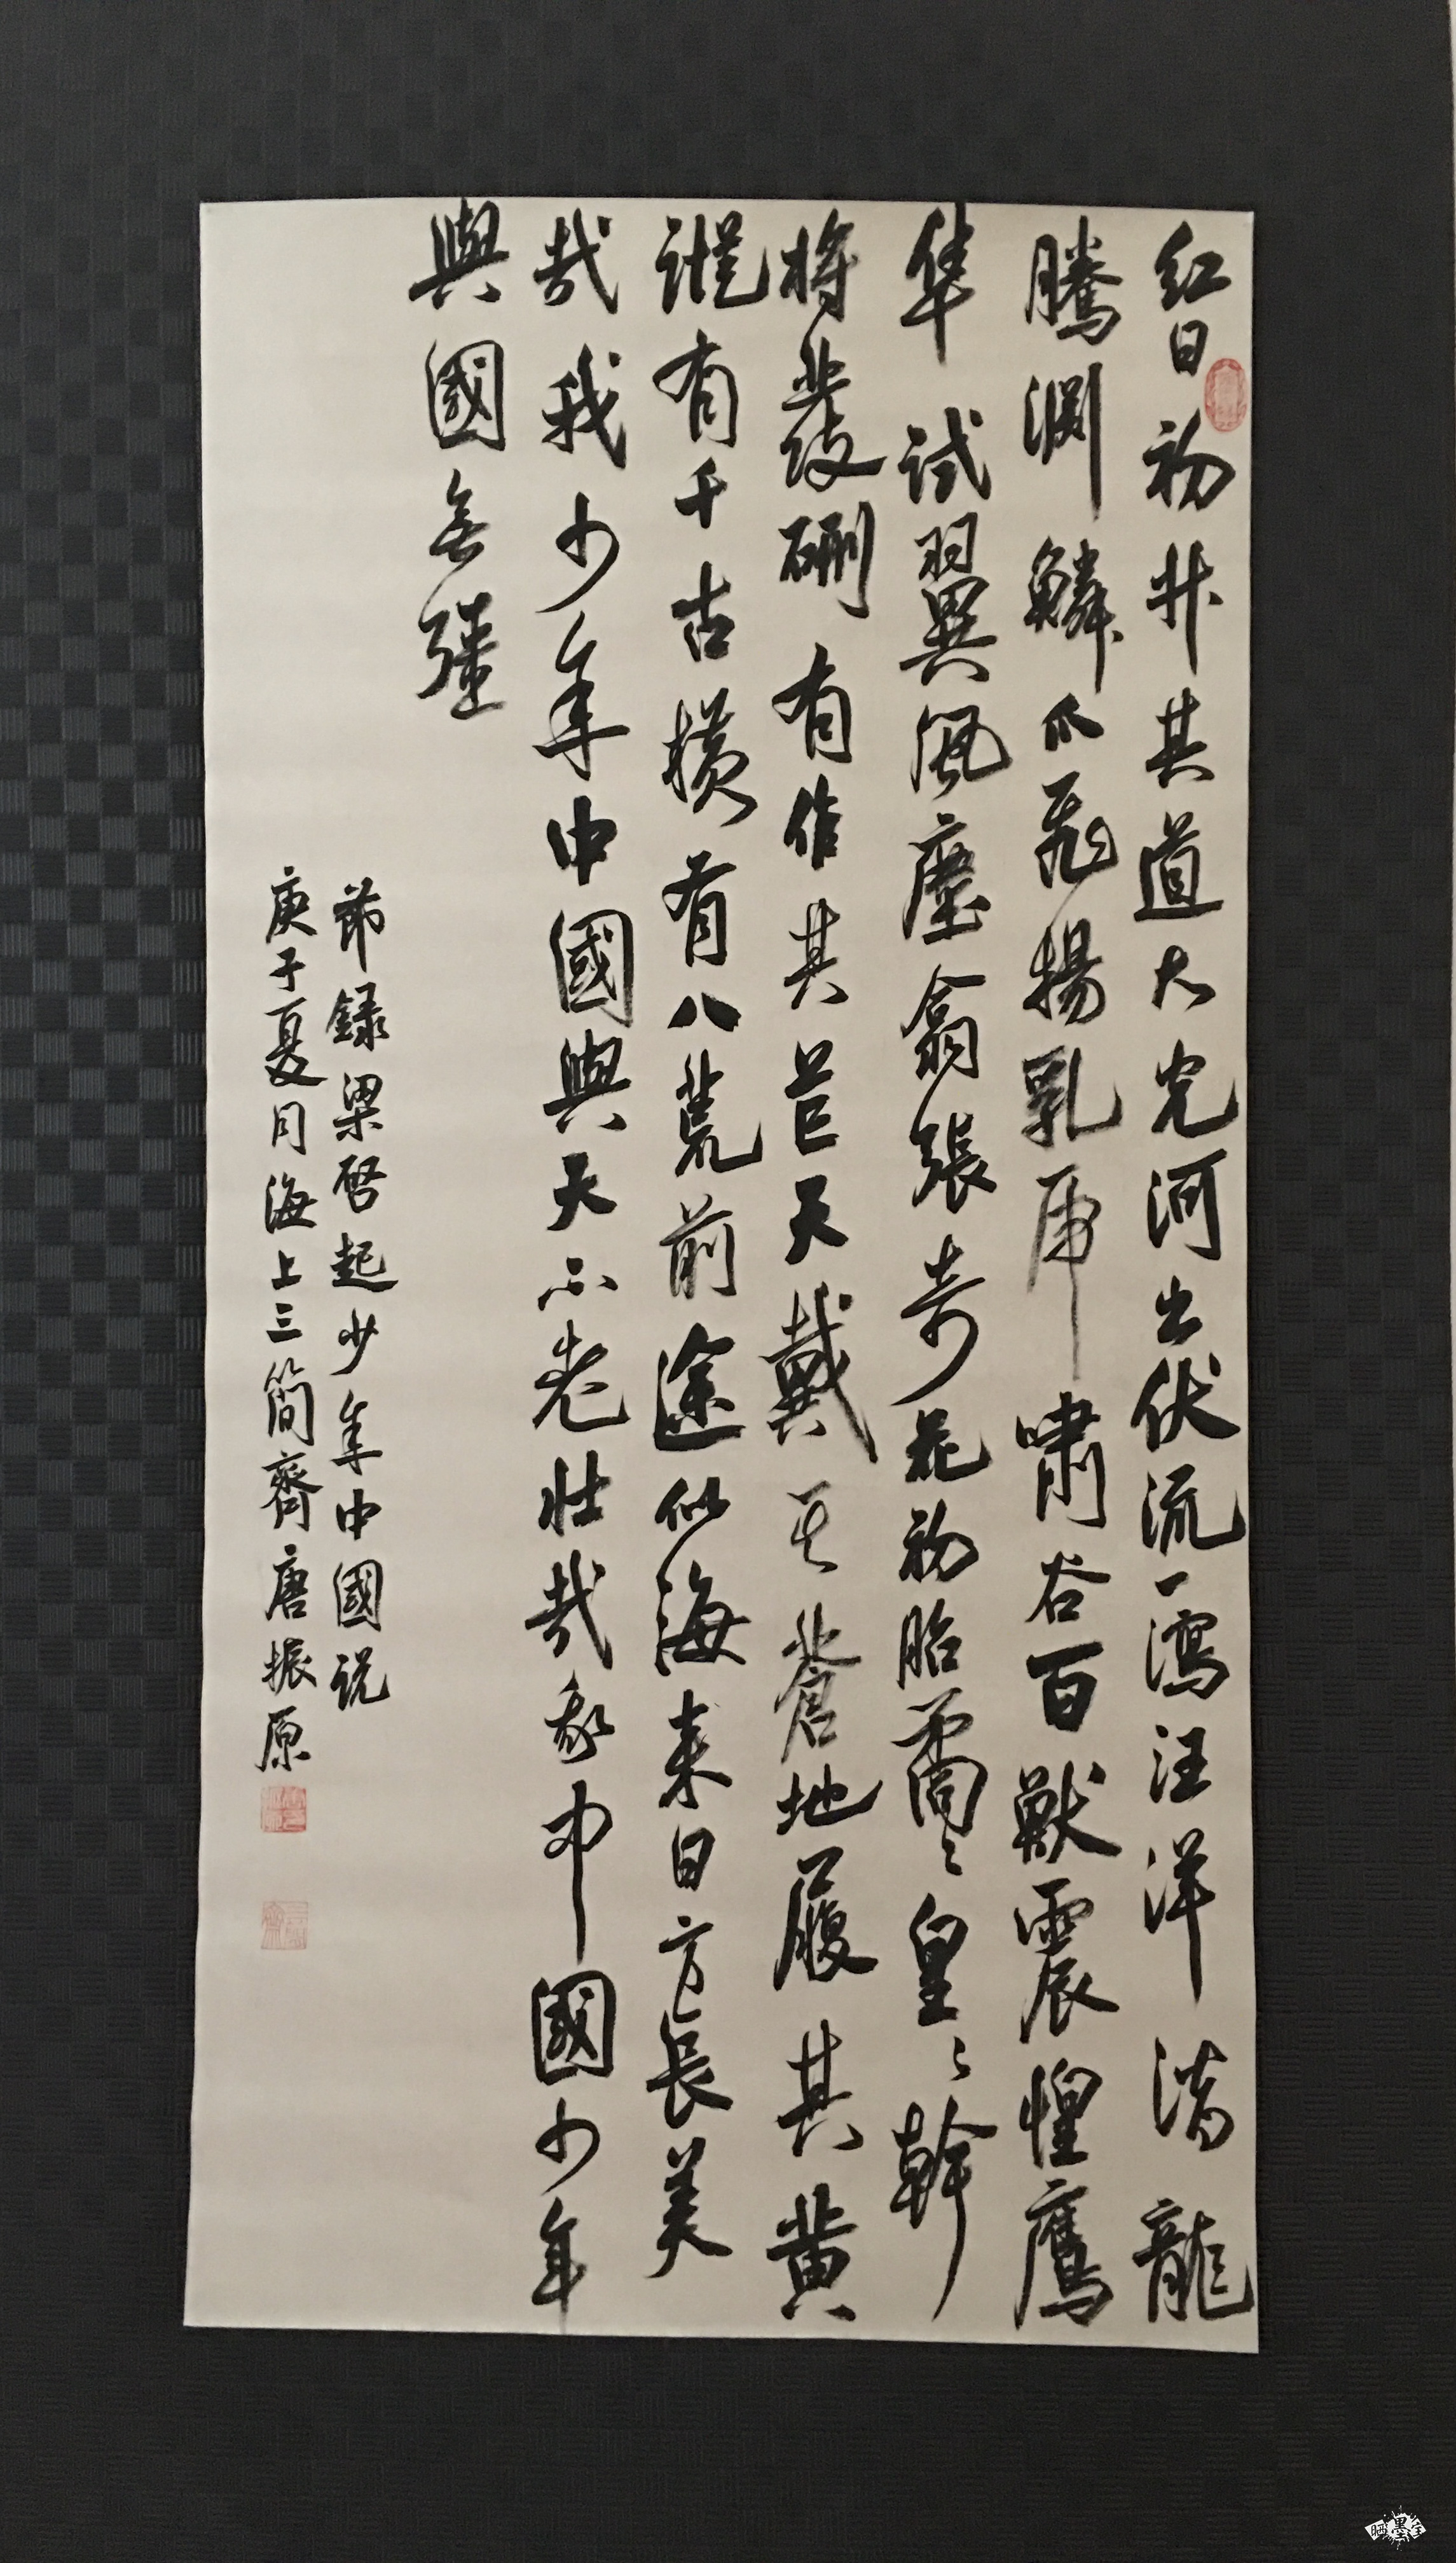 紅日初升其道大光河出伏流一瀉汪洋潛龍
騰淵鱗爪飛揚乳虎嘯谷百獸震惶鷹
隼試翼風塵翕張奇花初胎矞〻皇〻幹
將發硎有作其芒天戴其蒼地履其黃
縱有千古橫有八荒前途似海来日方長美
哉我少年中國與天不老壯哉我中國少年
與國無疆
節録梁啓超少年中國说
庚子夏月海上三简齋唐振原
晒墨宝